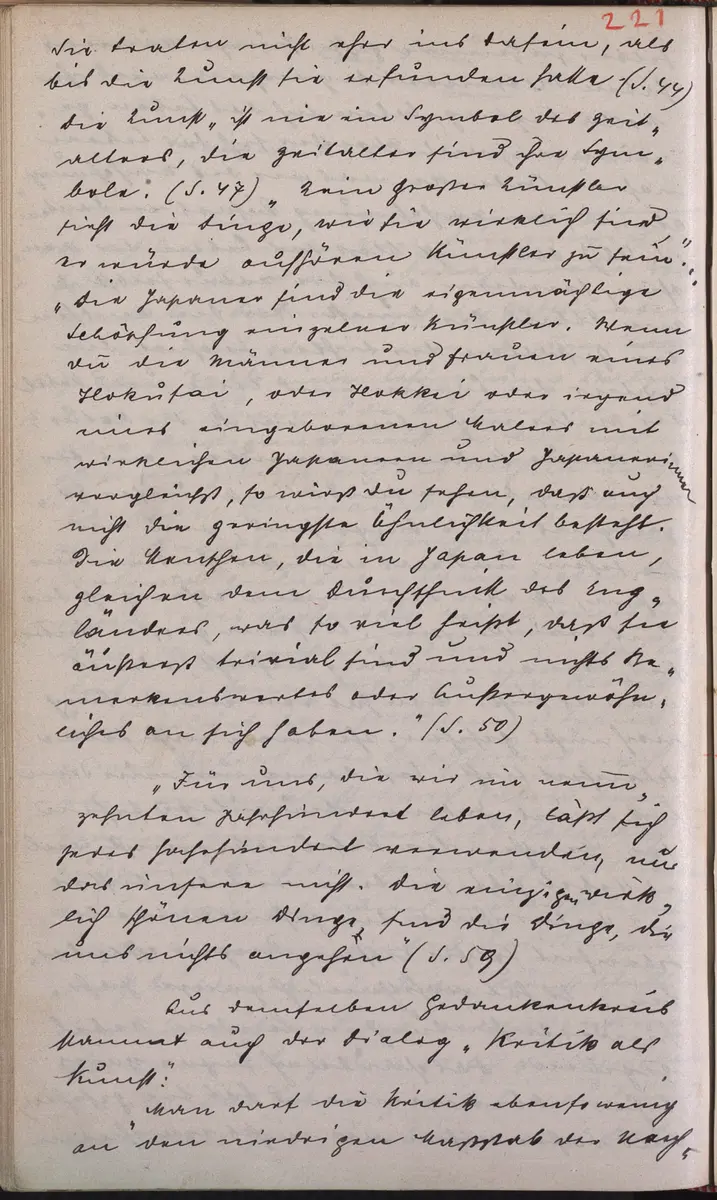 221
Sie traten nicht eher ins Dasein, als
bis die Kunst sie erfunden hatte (S. 44)
Die Kunst „ist nie ein Symbol des Zeit„
alters, die Zeitalter sind ihre Sym„
bole. (S. 47) „Kein großer Künstler
sieht die Dinge, wie sie wirklich sind,
er würde aufhören Künstler zu sein“...
„Die Japaner sind die eigenmächtige
Schöpfung einzelner Künstler. Wenn
du die Männer und Frauen eines
Hokusai, oder Hokkei oder irgend
eines eingeborenen Malers mit
wirklichen Japanern und Japanerinnen
vergleichst, so wirst du sehen, daß auch
nicht die geringste Ähnlichkeit besteht.
Die Menschen, die in Japan leben,
gleichen dem Durchschnitt des Eng„
länders, was so viel heißt, daß sie
äußerst trivial sind und nichts Be„
merkenswertes oder Außergewöhn„
liches an sich haben.“ (S. 50)
„Für uns, die wir im neun„
zehnten Jahrhundert leben, läßt sich
jedes Jahrhundert verwenden, nur
das unsere nicht. Die einzigen wirk„
lich schönen Dinge, sind die Dinge, die
uns nichts angehen“ (S. 59)
Aus demselben Gedankenkreis
stammt auch der Dialog „Kritik als
Kunst“:
„Man darf die Kritik ebensowenig
an den niedrigen Maßstab der Nach„